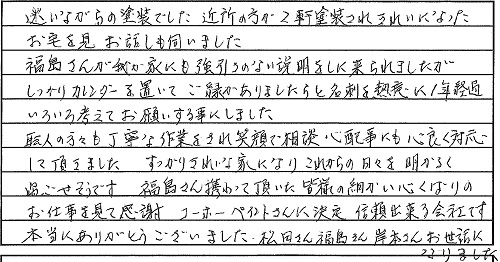 迷いながらの塗装でした 近所の方が2軒塗装されきれいになった
お宅を見 お話しも伺いました
福島さんが我が家にも強引さのない説明をしに来られましたが
しっかりカレンダーを置いて ご縁がありましたらと名刺を 熱意に1年経過
いろいろ考えてお願いする事にしました
職人の方々も丁寧な作業をされ笑顔で相談 心配事にも心良く対応
して頂きました すっかりきれいな家になり これからの日々を明るく
過ごせそうです 福島さん携わって頂いた皆様の細かい心くばりの
お仕事を見て感謝 ユーホーペイントさんに決定 信頼出来る会社です
本当にありがとうございました 松田さん福島さん岸本さんお世話に
なりました